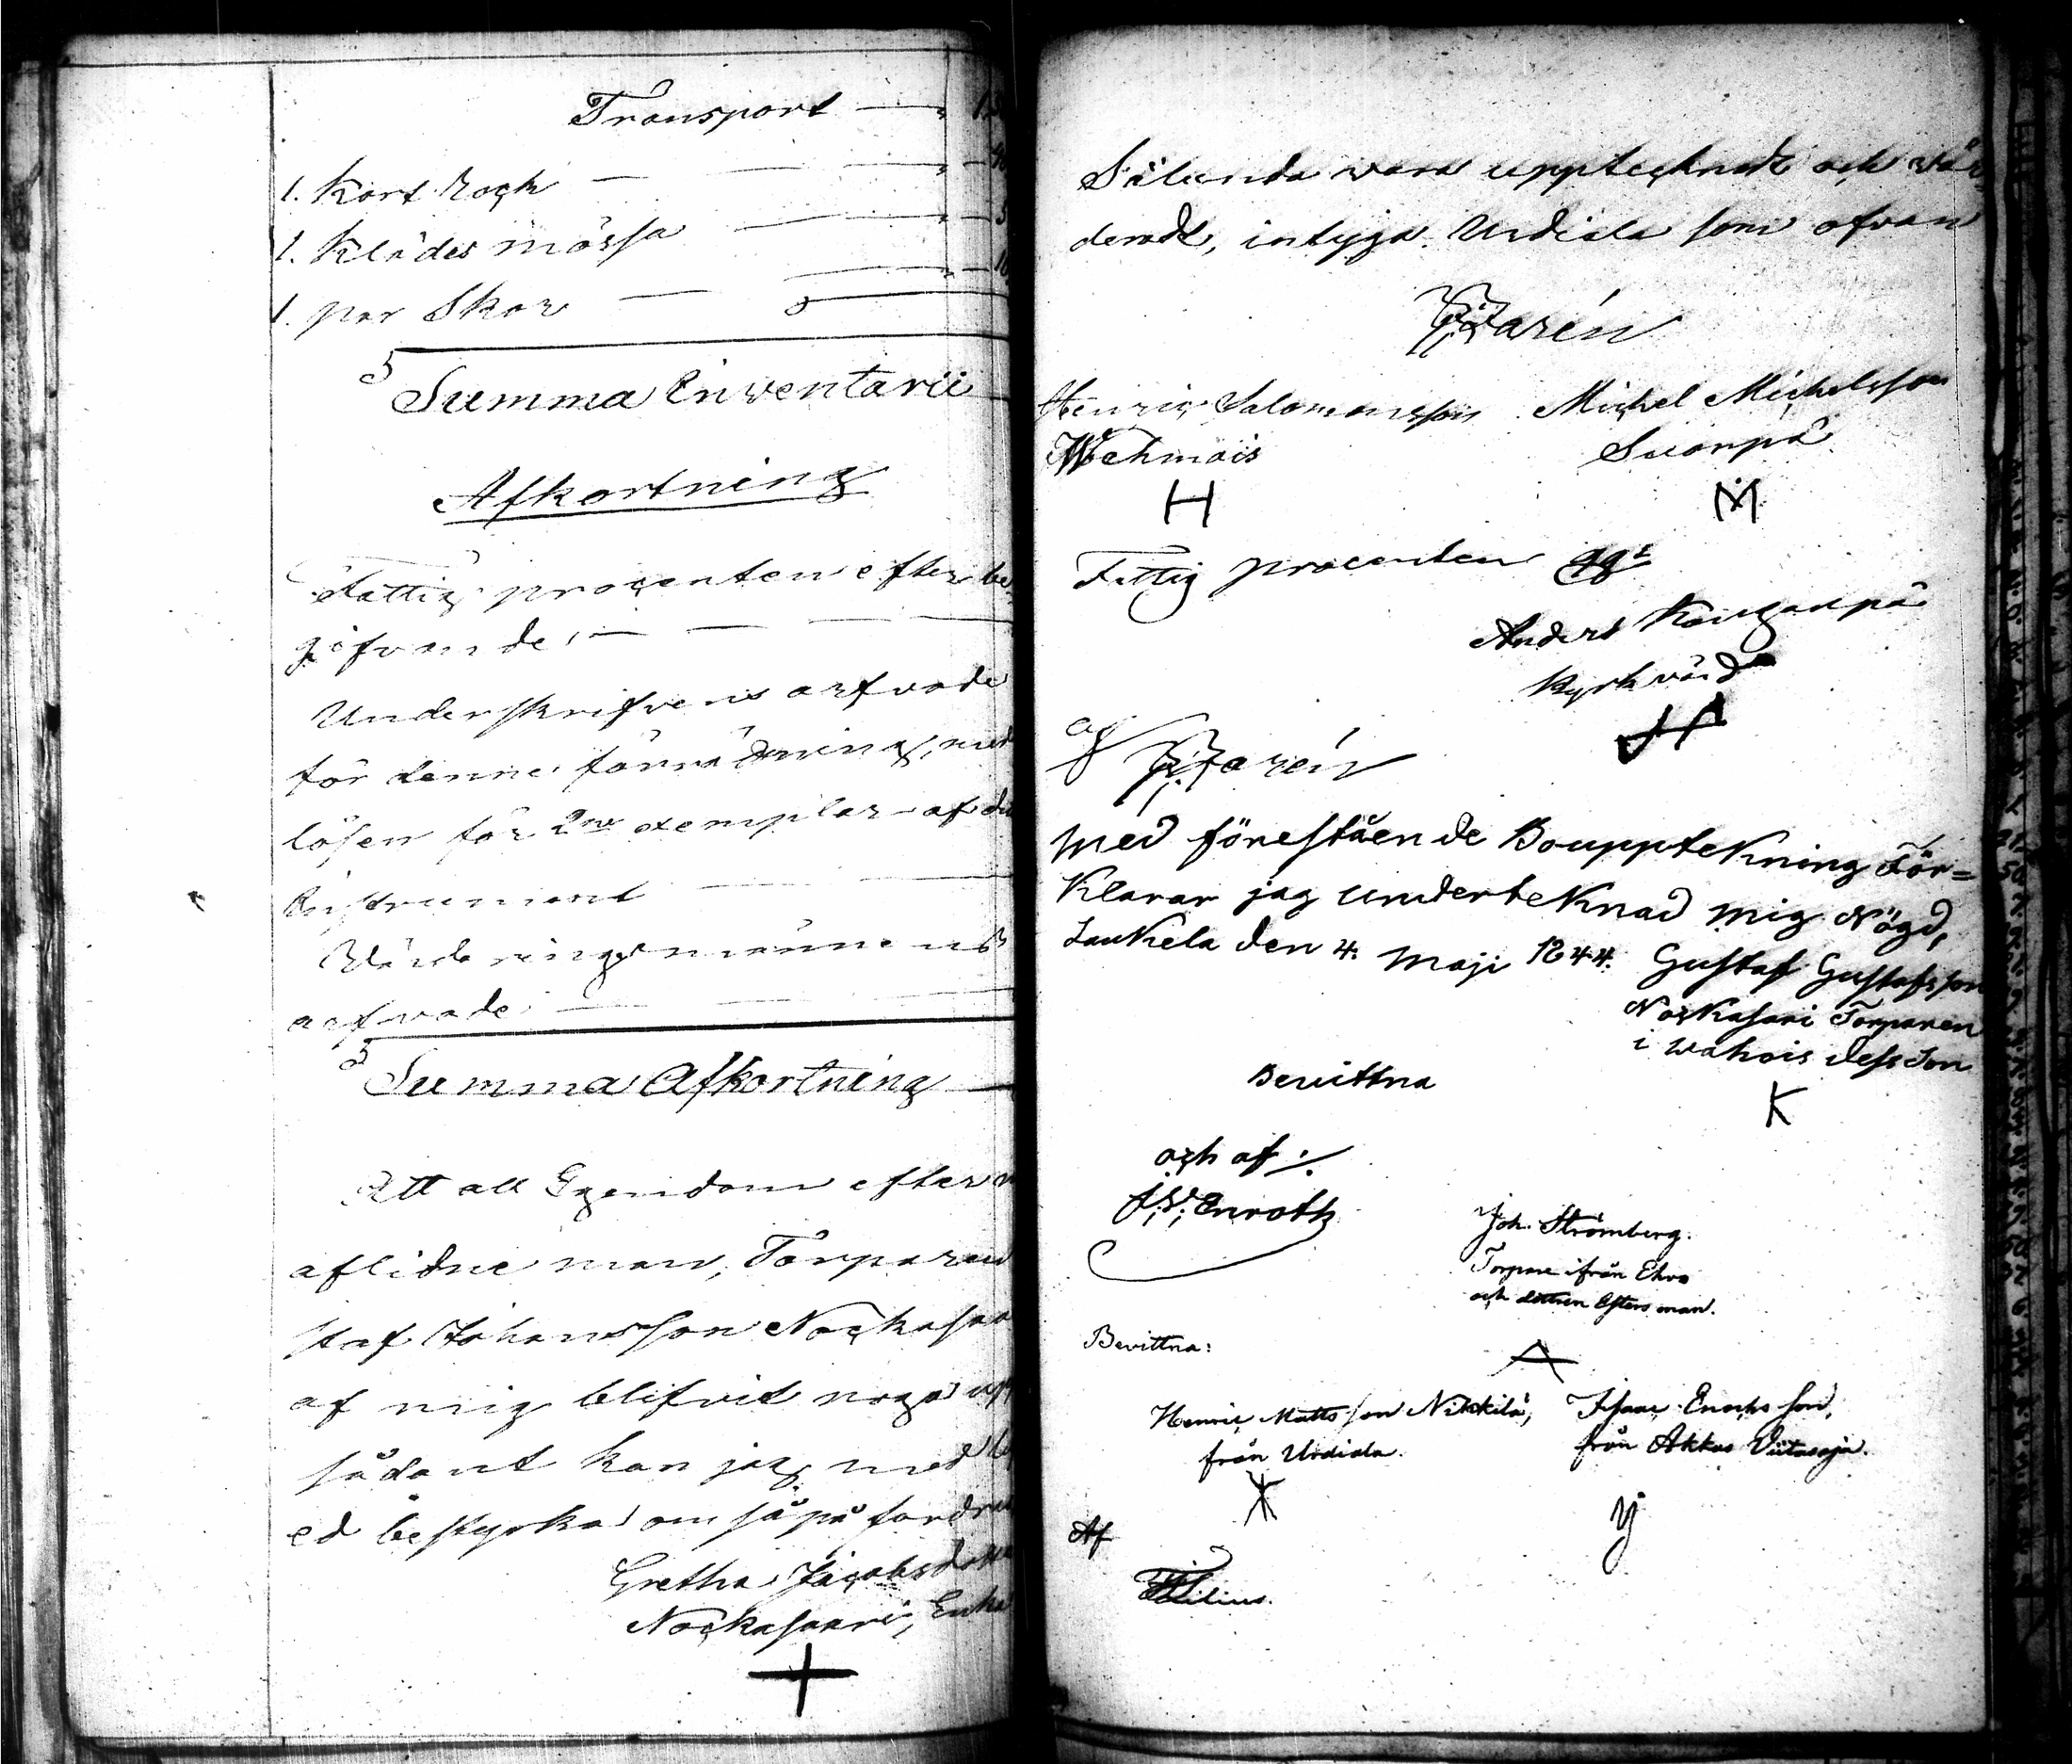 Transport
1. Kort Rock
1. Klädes mössa
1. par Skor
Summa Inventarii
Afkortning
Fattig procenten efter be
gifvande
Underskrifvens arfvode
för denne förrättning, med
lösen för 2ne exemplar af de
Instrument
Värderingsmännens
arfvode
Summa Afkortning
Att all Egendom efter m
aflidne man, Torparen
staf Johansson Nockasaa
af mig blifvit noga upp
sådant kan jag med
ed bestyrka om så på fordras
Gretha Jacobsdotter
Nockasaari, Enka
Sålunda vara upptecknadt och vär
deradt, intyga. Urdiala som ofvan
Henric Salomonsson Michel Michelsson
Wehmais Suonpä
H M
Fattig procenten
Anders Kanganpä
Kyrkvärd
af
Med förestående Bouppteckning För=
Klarar jag underteknad mig Nögd,
Laukela den 4. Maji 1844. Gustaf Gustafsson
Nockasari Torparen
i wahois dess Son
Bevittna K
och af:
Enroth
Joh. Strömberg.
Torpare ifrån
och man.
Bevittna:
Henric Mattsson Nikkilä, Isaac Enochsson,
från Urdiala. från Akkas Viitasaja.
Af